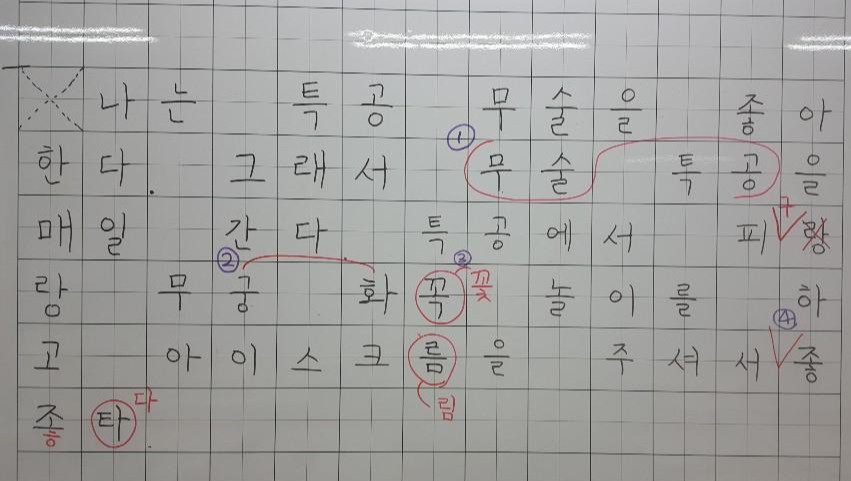 나는 특공 무술을 좋아
① 
한다. 그래서 무술 특공을
구
매일 간다 특공에서 피랑
② ③ 꽃
랑 무궁 화꼭 놀이를 하
④
고 아이스크름을 주셔서 좋
다 림
좋타.